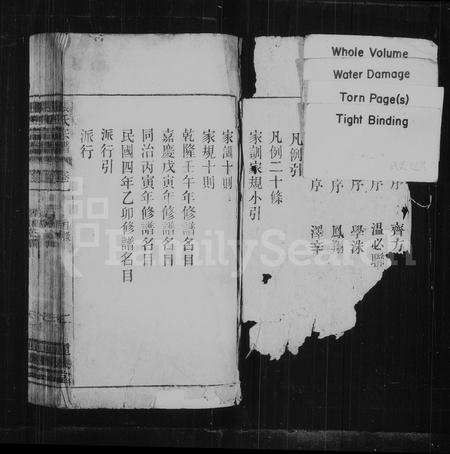 Whole Volume
Water Damage
Torn Page(s)
Tight Binding
序 齊方
序 溫必聯
序 學洙
序 鳳翔
序 澤辛
凡例引
凡例二十條
家訓家規小引
家訓十則
家規十則
乾隆壬午年修譜名目
嘉慶戊寅年修譜名目
同治丙寅年修譜名目
民國四年乙卯修譜名目
派行引
派行
FamilySearch